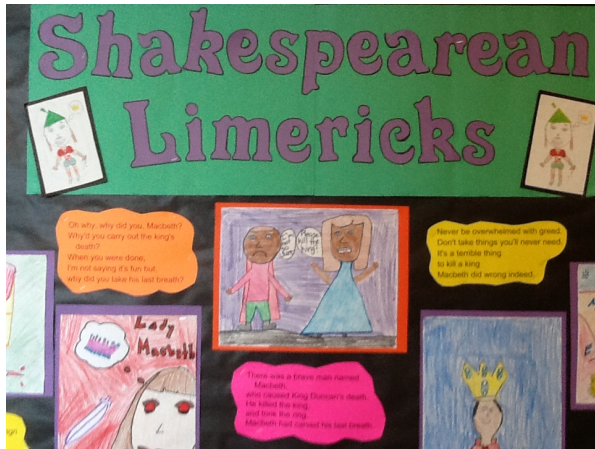 Shakespearean
Limericks
Oh why, why did you, Macbeth?
Why'd you carry out the king's
death?
When you were done,
I'm not saying it's fun but,
why did you take his last breath?
Never be overwhelmed with greed.
Don't take things you'll never need.
It's a terrible thing
to kill a king
Macbeth did wrong indeed.
Please
kill the
king!
Lady
Macbeth
There was a brave man named
Macbeth,
who caused King Duncan's death.
He killed the king,
and took the ring.
Macbeth had carved his last breath.